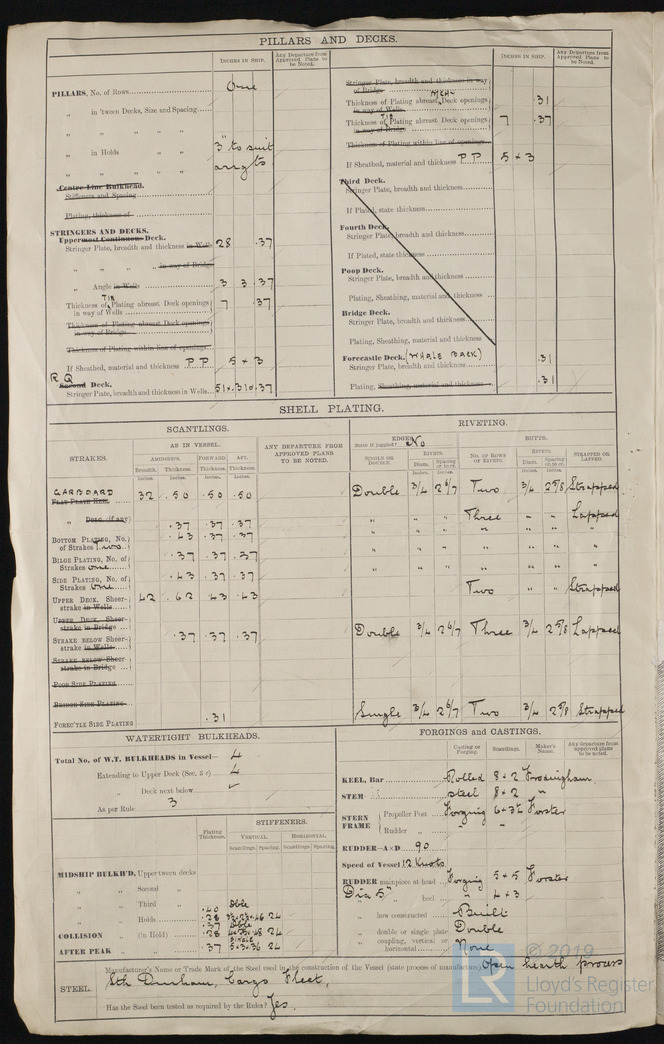 PILLARS AND DECKS.
INCHES IN SHIP.
Any Departure from Approved Plans to be Noted.
PILLARS, No. of Rows One
„ in 'tween Decks, Size and Spacing
„ „ „ „
„ in Holds 3" to suit
„ „ „ „ arrgts
Centre Line Bulkhead.
Stiffeners and Spacing
Plating, thickness of
STRINGERS AND DECKS.
Uppermost Continuous Deck.
Stringer Plate, breadth and thickness in Wells 28 .37
„ „ „ „ in way of Bridge
„ Angle in Wells 3 3 .37
Thickness of Tie Plating abreast Deck openings in way of Wells 7 .37
Thickness of Plating abreast Deck openings in way of Bridge
Thickness of Plating within line of openings
If Sheathed, material and thickness P P 5 + 3
R Q
Second Deck.
Stringer Plate, breadth and thickness in Wells
INCHES IN SHIP.
Any Departure from Approved Plans to be Noted.
Stringer Plate, breadth and thickness in way of Bridge
Thickness of Plating abreast Mchy Deck openings in way of Wells .31
Thickness of Tie Plating abreast Deck openings in way of Bridge 7 .37
Thickness of Plating within line of openings
If Sheathed, material and thickness P P 5 + 3
Third Deck.
Stringer Plate, breadth and thickness
If Plated, state thickness
Fourth Deck.
Stringer Plate, breadth and thickness
If Plated, state thickness
Poop Deck.
Stringer Plate, breadth and thickness
Plating, Sheathing, material and thickness
Bridge Deck.
Stringer Plate, breadth and thickness
Plating, Sheathing, material and thickness
Forecastle Deck. (WHALE BACK)
Stringer Plate, breadth and thickness .31
Plating, Sheathing, material and thickness .31
SHELL PLATING.
SCANTLINGS.
RIVETING.
STRAKES.
AS IN VESSEL.
AMIDSHIPS. FORWARD AFT.
Breadth. Thickness. Thickness. Thickness.
Inches. Inches. Inches. Inches.
ANY DEPARTURE FROM APPROVED PLANS TO BE NOTED.
EDGES. State if joggled? No
SINGLE OR DOUBLE.
RIVETS. Diam. Spacing cr. to cr.
Inches. Inches.
BUTTS.
No. OF ROWS OF RIVETS.
RIVETS. Diam. Spacing cr. to cr.
Inches. Inches.
STRAPPED OR LAPPED.
GARBOARD
FLAT PLATE KEEL 32 .50 .50 .50 Double 3/4 2 6/7 Two 3/4 2 5/8 Strapped
„ Dblg. (if any) .37 .37 .37 „ „ „ Three „ „ Lapped
BOTTOM PLATING, No. of Strakes two .43 .37 .37 „ „ „ „ „ „ „
BILGE PLATING, No. of Strakes one .37 .37 .37 „ „ „ „ „ „ „
SIDE PLATING, No. of Strakes One .43 .37 .37 „ „ „ „ „ „ „
UPPER DECK. Sheer-strake in Wells 42 .62 .43 .43 Two „ „ Strapped
UPPER DECK. Sheer-strake in Bridge
STRAKE BELOW Sheer-strake in Wells .37 .37 .37 Double 3/4 2 6/7 Three 3/4 2 5/8 Lapped
STRAKE BELOW Sheer-strake in Bridge
POOP SIDE PLATING
BRIDGE SIDE PLATING
FOREC'TLE SIDE PLATING .31 Single 3/4 2 6/7 Two 3/4 2 5/8 Strapped
WATERTIGHT BULKHEADS.
Total No. of W.T. BULKHEADS in Vessel— 4
Extending to Upper Deck (Sec. 3 c) 4
„ Deck next below ✓
As per Rule 3
Plating Thickness.
STIFFENERS.
VERTICAL. HORIZONTAL.
Scantlings. Spacing. Scantlings. Spacing.
MIDSHIP BULKH'D, Upper tween decks
„ „ Second „
„ „ Third „ Dble
„ „ Holds
COLLISION „ (in Hold)
AFTER PEAK „ .37 24
FORGINGS and CASTINGS.
Casting or Forging. Scantlings. Maker's Name. Any departure from approved plans to be noted.
KEEL, Bar Rolled 8 + 2 Frodingham
STEM steel 8 + 2 „
STERN FRAME
Propeller Post Forging Forster
Rudder „ „ „
RUDDER—A×D 90
Speed of Vessel 12 knots
RUDDER mainpiece at head Forging 5 + 5 Forster
Dia 5"
„ „ heel „ 4 + 3
„ how constructed Built
„ double or single plate Double
„ coupling, vertical or horizontal None
STEEL.
Manufacturer's Name or Trade Mark of the Steel used in the construction of the Vessel (state process of manufacture) Open hearth process
Sth Durham, Cargo Fleet,
Has the Steel been tested as required by the Rules? Yes.
© 2019
LR
Lloyd's Register
Foundation